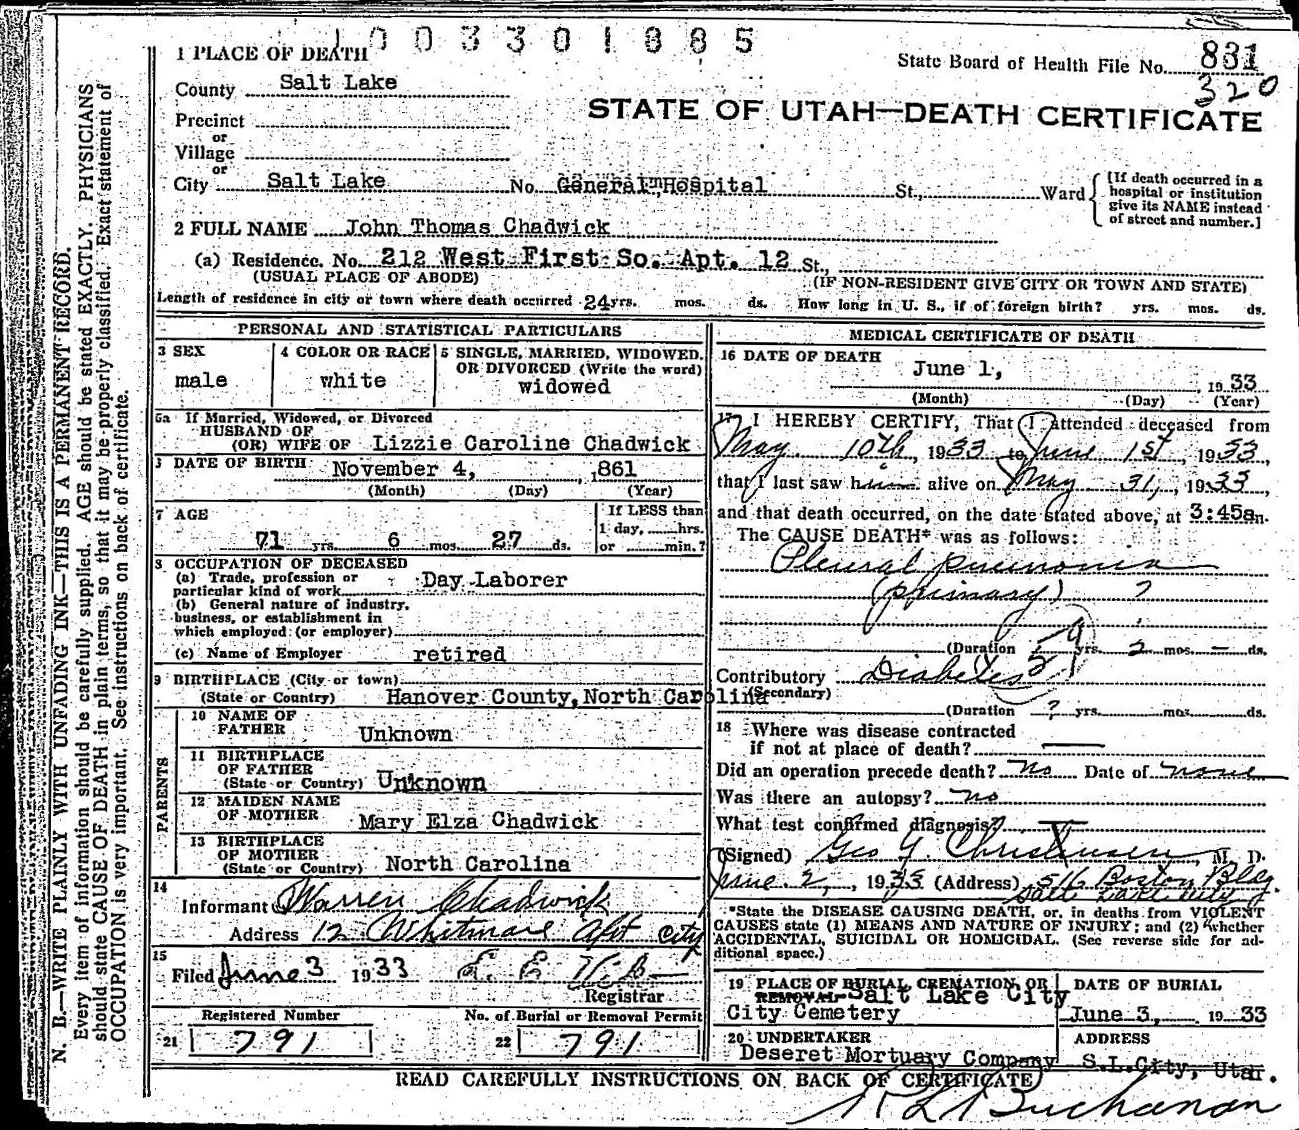 1003301885
1 PLACE OF DEATH
State Board of Health File No. 831
320
County Salt Lake
STATE OF UTAH—DEATH CERTIFICATE
Precinct
or
Village
or
City Salt Lake No. General Hospital St., Ward
[If death occurred in a
hospital or institution
give its NAME instead
of street and number.]
2 FULL NAME John Thomas Chadwick
(a) Residence. No. 212 West First So. Apt. 12 St.,
(USUAL PLACE OF ABODE) (IF NON-RESIDENT GIVE CITY OR TOWN AND STATE)
Length of residence in city or town where death occurred 24 yrs. mos. ds. How long in U. S., if of foreign birth? yrs. mos. ds.
PERSONAL AND STATISTICAL PARTICULARS
3 SEX
male
4 COLOR OR RACE
white
5 SINGLE, MARRIED, WIDOWED,
OR DIVORCED (Write the word)
widowed
5a If Married, Widowed, or Divorced
HUSBAND OF
(OR) WIFE OF Lizzie Caroline Chadwick
DATE OF BIRTH November 4, 1861
(Month) (Day) (Year)
7 AGE
71 yrs. 6 mos. 27 ds.
If LESS than
1 day, hrs.
or min.?
8 OCCUPATION OF DECEASED
(a) Trade, profession or
particular kind of work Day Laborer
(b) General nature of industry,
business, or establishment in
which employed (or employer)
(c) Name of Employer retired
9 BIRTHPLACE (City or town)
(State or Country) Hanover County, North Carolina
PARENTS
10 NAME OF
FATHER Unknown
11 BIRTHPLACE
OF FATHER
(State or Country) Unknown
12 MAIDEN NAME
OF MOTHER Mary Elza Chadwick
13 BIRTHPLACE
OF MOTHER
(State or Country) North Carolina
14
Informant Warren Chadwick
Address 12 Whitmore Apt City
15
Filed June 3 1933
Registrar
Registered Number
21 791
No. of Burial or Removal Permit
22 791
MEDICAL CERTIFICATE OF DEATH
16 DATE OF DEATH
June 1, 1933
(Month) (Day) (Year)
17 I HEREBY CERTIFY, That I attended deceased from
May 10th, 1933 to June 1st, 1933,
that I last saw him alive on May 31, 1933,
and that death occurred, on the date stated above, at 3:45am.
The CAUSE DEATH* was as follows:
Pleural pneumonia
(primary) ?
(Duration yrs. 2 mos. — ds.
Contributory Diabetes
(Secondary)
(Duration ? yrs. mos. ds.
18 Where was disease contracted
if not at place of death?
Did an operation precede death? no Date of none
Was there an autopsy? no
What test confirmed diagnosis?
(Signed) Geo Y. Christensen, M. D.
June 2, 1933 (Address) 516 Boston Bldg.
Salt Lake City
*State the DISEASE CAUSING DEATH, or, in deaths from VIOLENT
CAUSES state (1) MEANS AND NATURE OF INJURY; and (2) whether
ACCIDENTAL, SUICIDAL OR HOMICIDAL. (See reverse side for ad-
ditional space.)
19 PLACE OF BURIAL, CREMATION, OR
REMOVAL Salt Lake City
City Cemetery
DATE OF BURIAL
June 3, 1933
20 UNDERTAKER
Deseret Mortuary Company
ADDRESS
S.L.City, Utah.
READ CAREFULLY INSTRUCTIONS ON BACK OF CERTIFICATE
R L Buchanan
N. B.—WRITE PLAINLY WITH UNFADING INK—THIS IS A PERMANENT RECORD.
Every item of information should be carefully supplied. AGE should be stated EXACTLY. PHYSICIANS
should state CAUSE OF DEATH in plain terms, so that it may be properly classified. Exact statement of
OCCUPATION is very important. See instructions on back of certificate.